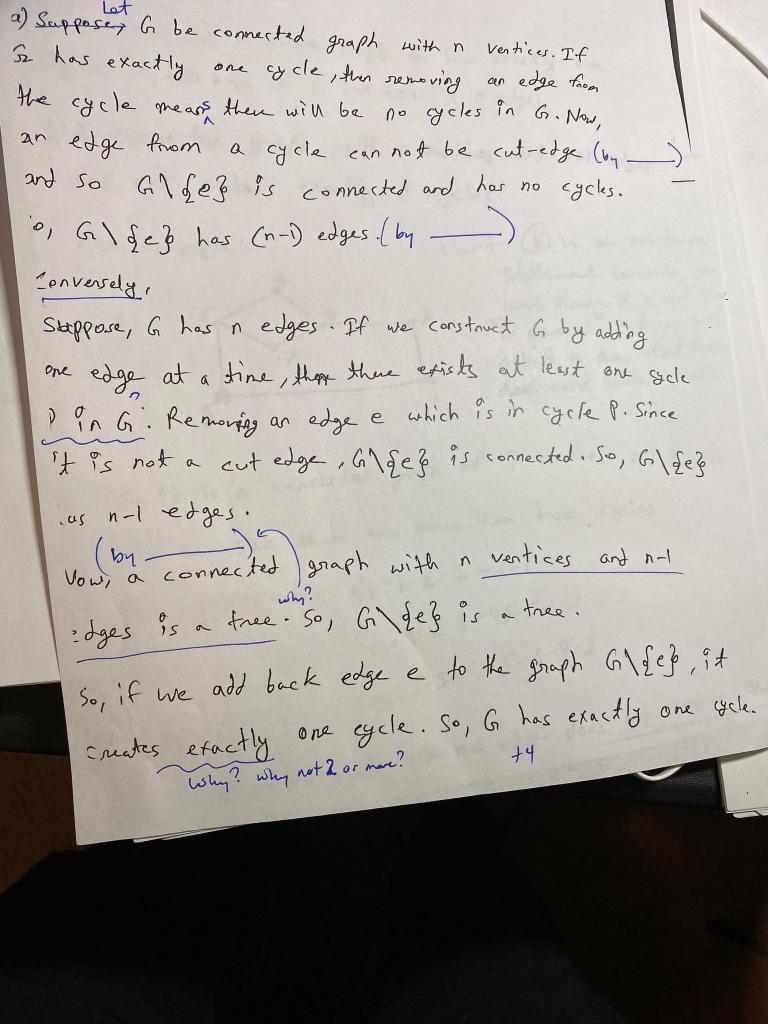 Let
a) Suppose, G be connected graph with n vertices. If
G has exactly one cycle, then removing an edge from
the cycle means there will be no cycles in G. Now,
an edge from a cycle can not be cut-edge (by ___)
and so G\{e} is connected and has no cycles.
so, G\{e} has (n-1) edges. (by ___)
Conversely,
Suppose, G has n edges. If we construct G by adding
one edge at a time, then there exists at least one cycle
P in G. Removing an edge e which is in cycle P. Since
?
it is not a cut edge, G\{e} is connected. So, G\{e}
as n-1 edges.
(by ___)
Now, a connected graph with n vertices and n-1
why?
edges is a tree. So, G\{e} is a tree.
So, if we add back edge e to the graph G\{e}, it
creates exactly one cycle. So, G has exactly one cycle.
why? why not 2 or more?
+4